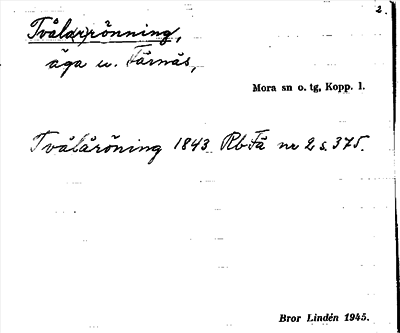 2.
Tvålar(r)rönning,
äga u. Färnäs,
Mora sn o. tg, Kopp. l.
Tvålåröning 1843 Rb Fä nr 2 s. 375.
Bror Lindén 1945.